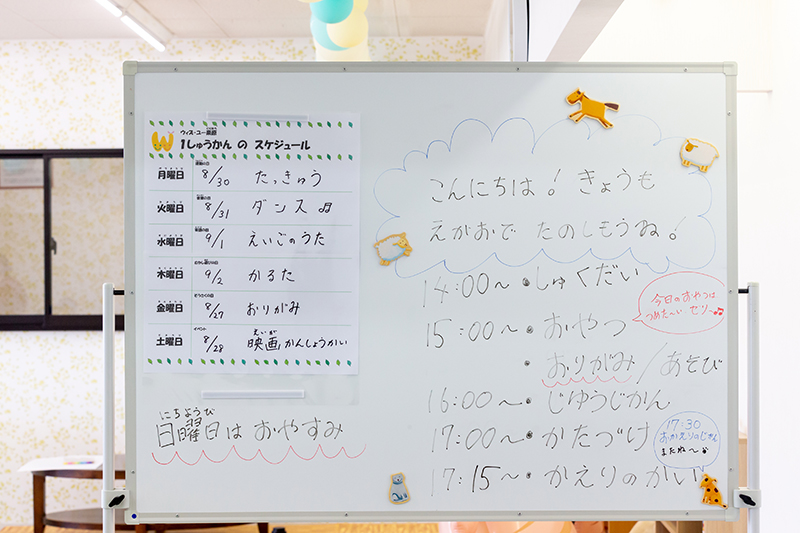 ウィズ・ユー
1しゅうかん の スケジュール
月曜日 8/30 たっきゅう
火曜日 8/31 ダンス♫
水曜日 9/1 えいごのうた
木曜日 9/2 かるた
金曜日 8/27 おりがみ
イベント えいが
土曜日 8/28 映画かんしょうかい
にちようび
日曜日は おやすみ
こんにちは! きょうも
えがおで たのしもうね!
14:00〜・しゅくだい
15:00〜・おやつ
今日のおやつは
つめた〜い ゼリ〜♫
・おりがみ/あそび
16:00〜・じゆうじかん
17:00〜・かたづけ
17:15〜・かえりのかい
17:30
おかえりのじかん
またね〜♪